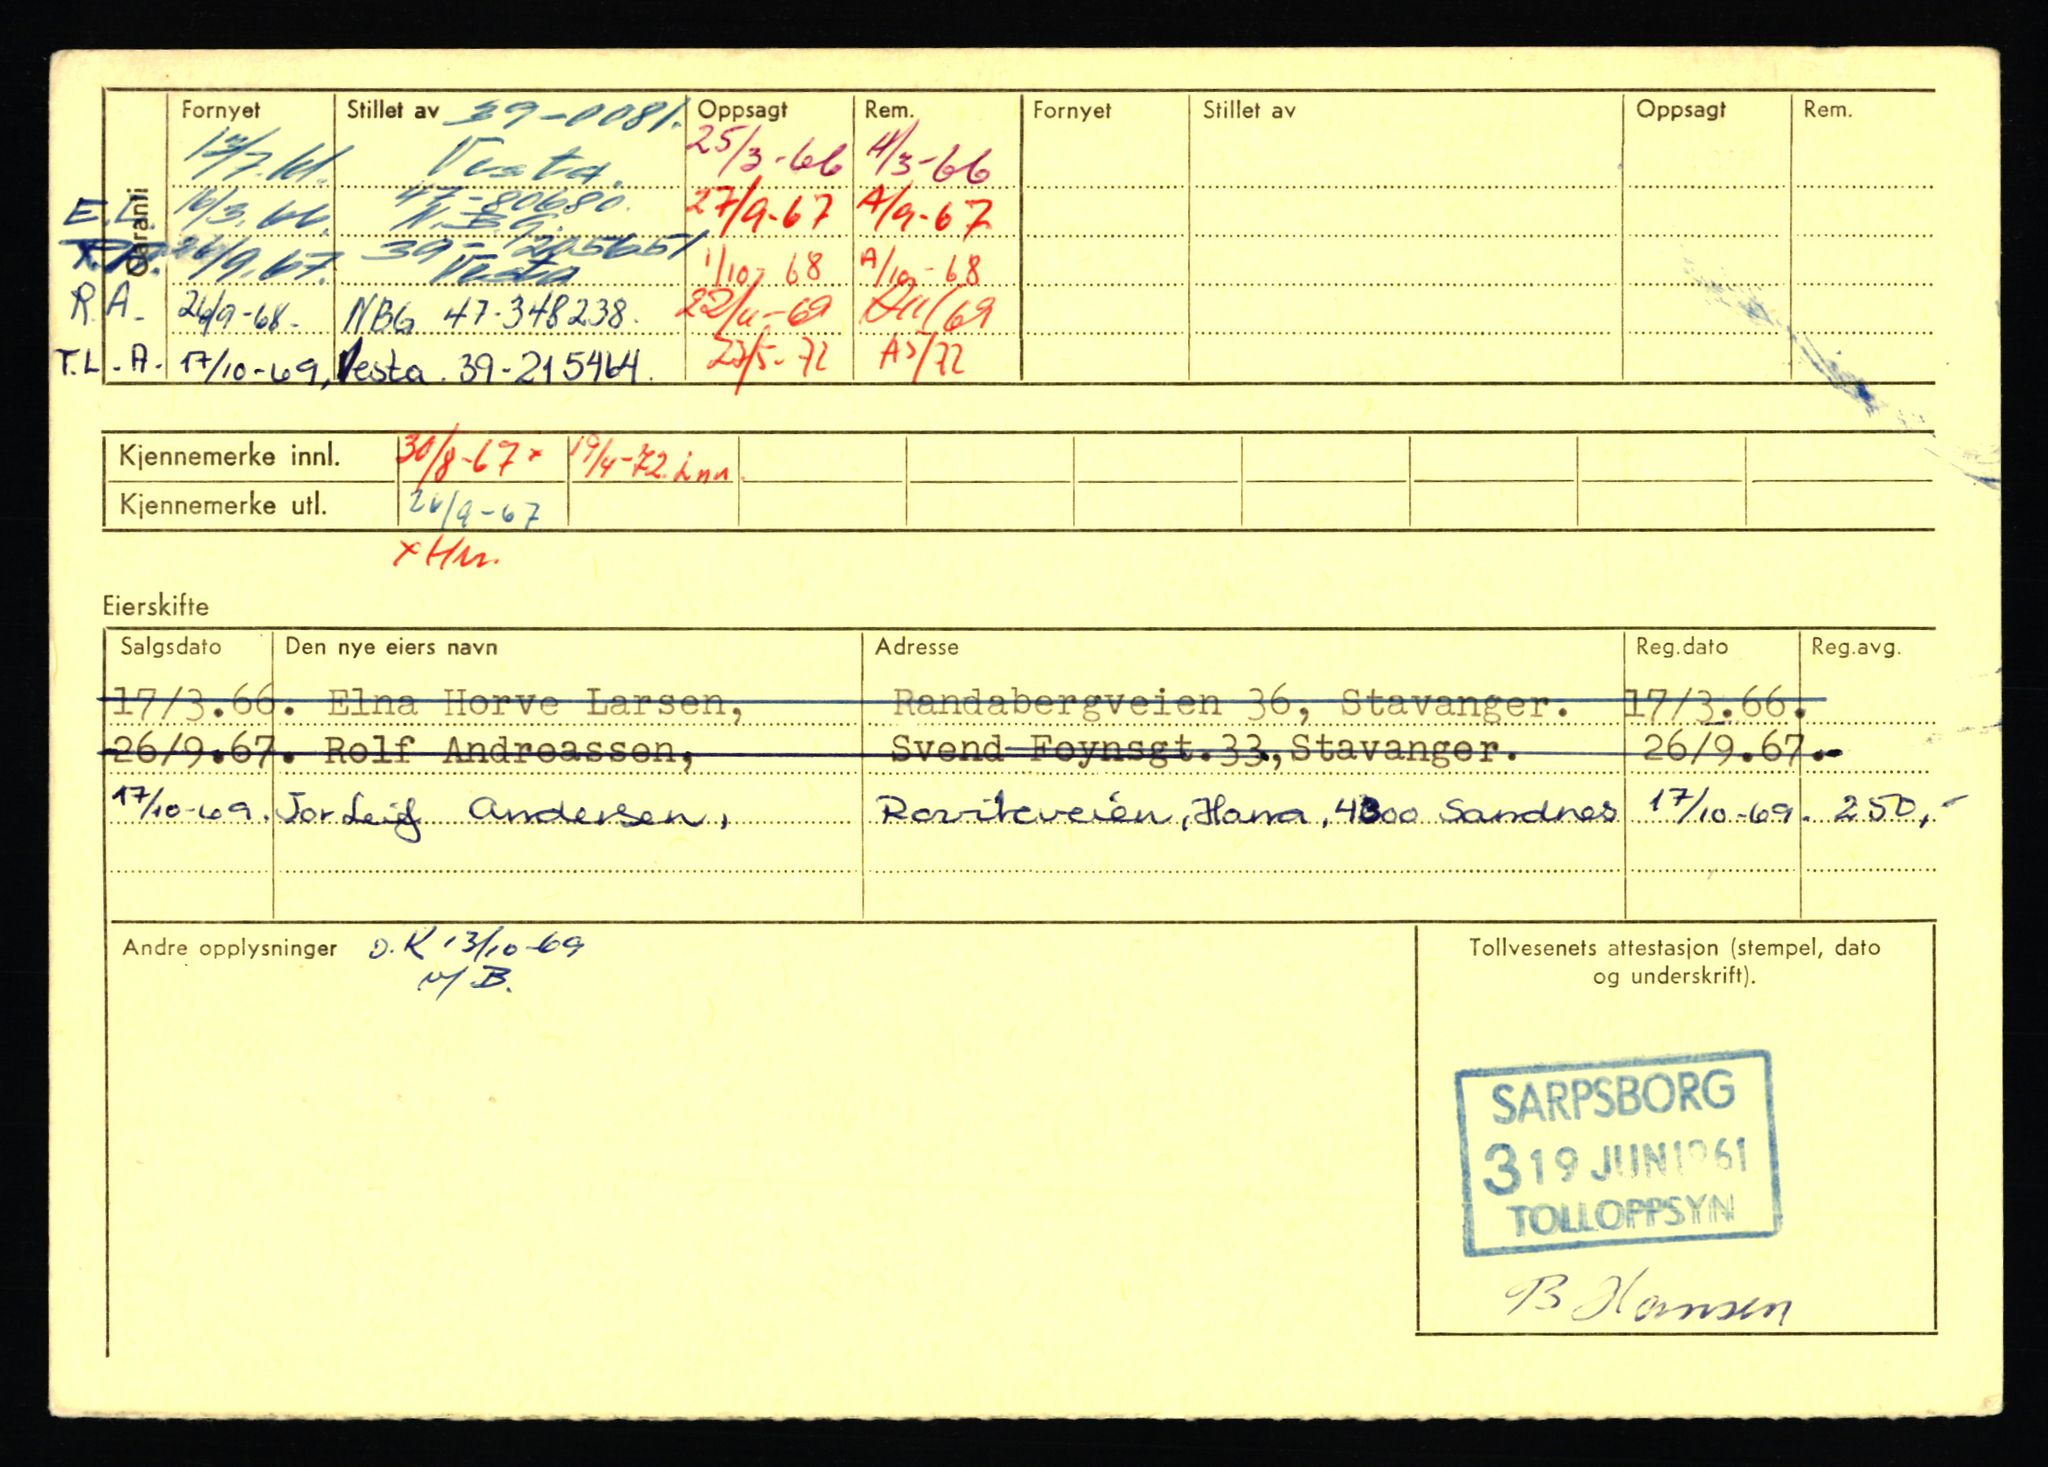 Fornyet Stillet av 39-0081. Oppsagt Rem. Fornyet Stillet av Oppsagt Rem.
Garanti
Vesta. 25/3-66 /3-66
E.L. 16/3.66. 47-80680. N.B.G. 27/9-67 A/9-67
26/9.67. 39-205651 Vesta 1/10-68 A/10-68
R.A. 26/9-68. NBG 47-348238. 22/11-69 /69
T.L.A. 17/10-69, Vesta. 39-215464. 23/5-72 A5/72
Kjennemerke innl. 30/8-67 x 19/4-72. inn.
Kjennemerke utl. 26/9-67
x Hn.
Eierskifte
Salgsdato Den nye eiers navn Adresse Reg.dato Reg.avg.
17/3.66. Elna Horve Larsen, Randabergveien 36, Stavanger. 17/3.66.
26/9.67. Rolf Andreassen, Svend Foynsgt.33, Stavanger. 26/9.67.-
17/10-69. Tor Leif Andersen, Hana, 4300 Sandnes 17/10-69. 250,-
Andre opplysninger O.K 13/10-69
Tollvesenets attestasjon (stempel, dato
og underskrift).
SARPSBORG
3 19 JUN 1961
TOLLOPPSYN
B Hansen